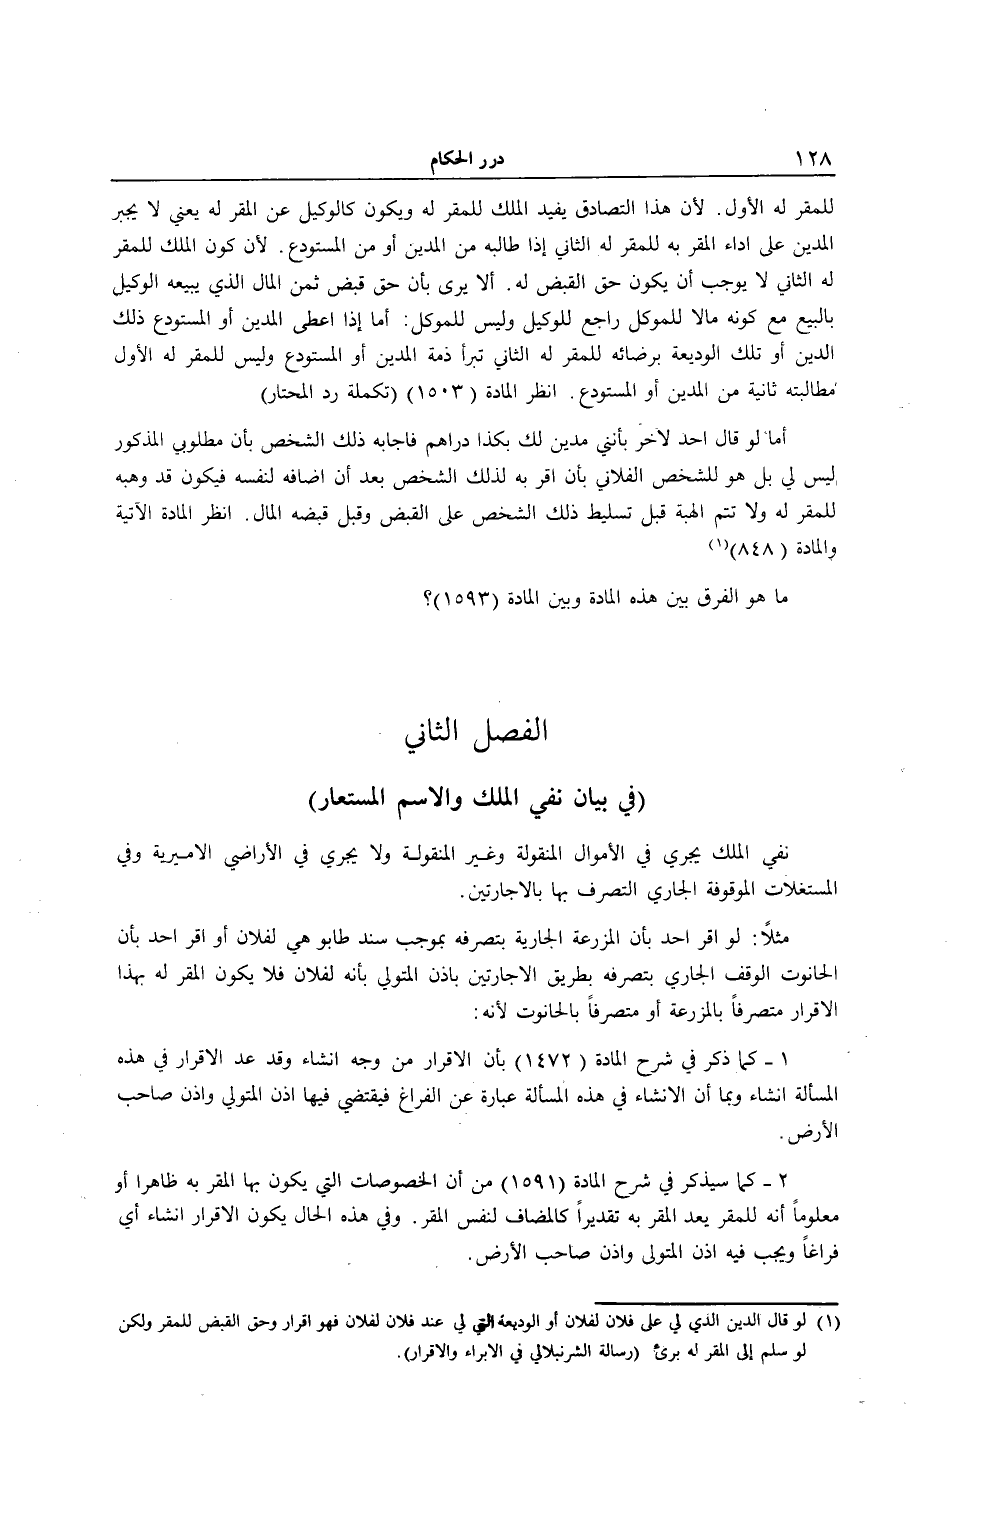 ١٢٨ درر الحكام
للمقر له الأول. لأن هذا التصادق يفيد الملك للمقر له ويكون كالوكيل عن المقر له يعني لا يجبر
المدين على اداء المقر به للمقر له الثاني إذا طالبه من المدين أو من المستودع. لأن كون الملك للمقر
له الثاني لا يوجب أن يكون حق القبض له. ألا يرى بأن حق قبض ثمن المال الذي يبيعه الوكيل
بالبيع مع كونه مالا للموكل راجع للوكيل وليس للموكل: أما إذا اعطى المدين أو المستودع ذلك
الدين أو تلك الوديعة برضائه للمقر له الثاني تبرأ ذمة المدين أو المستودع وليس للمقر له الأول
مطالبته ثانية من المدين أو المستودع. انظر المادة (١٥٠٣) (تكملة رد المحتار)
أما لو قال احد لاخر بأنني مدين لك بكذا دراهم فاجابه ذلك الشخص بأن مطلوبي المذكور
ليس لي بل هو للشخص الفلاني بأن اقر به لذلك الشخص بعد أن اضافه لنفسه فيكون قد وهبه
للمقر له ولا تتم الهبة قبل تسليط ذلك الشخص على القبض وقبل قبضه المال. انظر المادة الآتية
والمادة (٨٤٨)(١)
ما هو الفرق بين هذه المادة وبين المادة (١٥٩٣)؟
الفصل الثاني
(في بيان نفي الملك والاسم المستعار)
نفي الملك يجري في الأموال المنقولة وغير المنقولة ولا يجري في الأراضي الاميرية وفي
المستغلات الموقوفة الجاري التصرف بها بالاجارتين.
مثلاً: لو اقر احد بأن المزرعة الجارية بتصرفه بموجب سند طابو هي لفلان أو اقر احد بأن
الحانوت الوقف الجاري بتصرفه بطريق الاجارتين باذن المتولي بأنه لفلان فلا يكون المقر له بهذا
الاقرار متصرفاً بالمزرعة أو متصرفاً بالحانوت لأنه:
١ - كما ذكر في شرح المادة (١٤٧٢) بأن الاقرار من وجه انشاء وقد عد الاقرار في هذه
المسألة انشاء وبما أن الانشاء في هذه المسألة عبارة عن الفراغ فيقتضي فيها اذن المتولي واذن صاحب
الأرض.
٢ - كما سيذكر في شرح المادة (١٥٩١) من أن الخصوصات التي يكون بها المقر به ظاهرا أو
معلوماً أنه للمقر يعد المقر به تقديراً كالمضاف لنفس المقر. وفي هذه الحال يكون الاقرار انشاء أي
فراغاً ويجب فيه اذن المتولى واذن صاحب الأرض.
(١) لو قال الدين الذي لي على فلان لفلان أو الوديعة التي لي عند فلان لفلان فهو اقرار وحق القبض للمقر ولكن
لو سلم إلى المقر له برئ (رسالة الشرنبلالي في الابراء والاقرار).